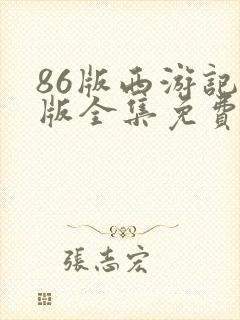 86版西游記
版全集免費
張志宏